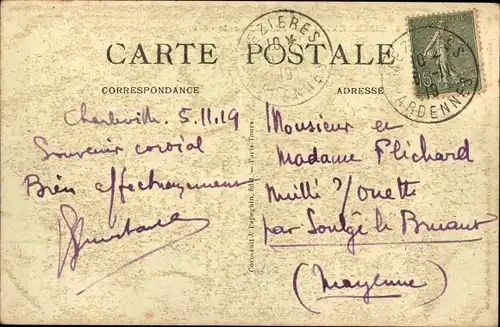 CARTE POSTALE
CORRESPONDANCE
ADRESSE
MEZIERES
ARDENNES
Charleville 5.11.19
Souvenir cordial
Bien affectueusement
Monsieur et
Madame Flichard
par Soulgé le Bruant
(Mayenne)